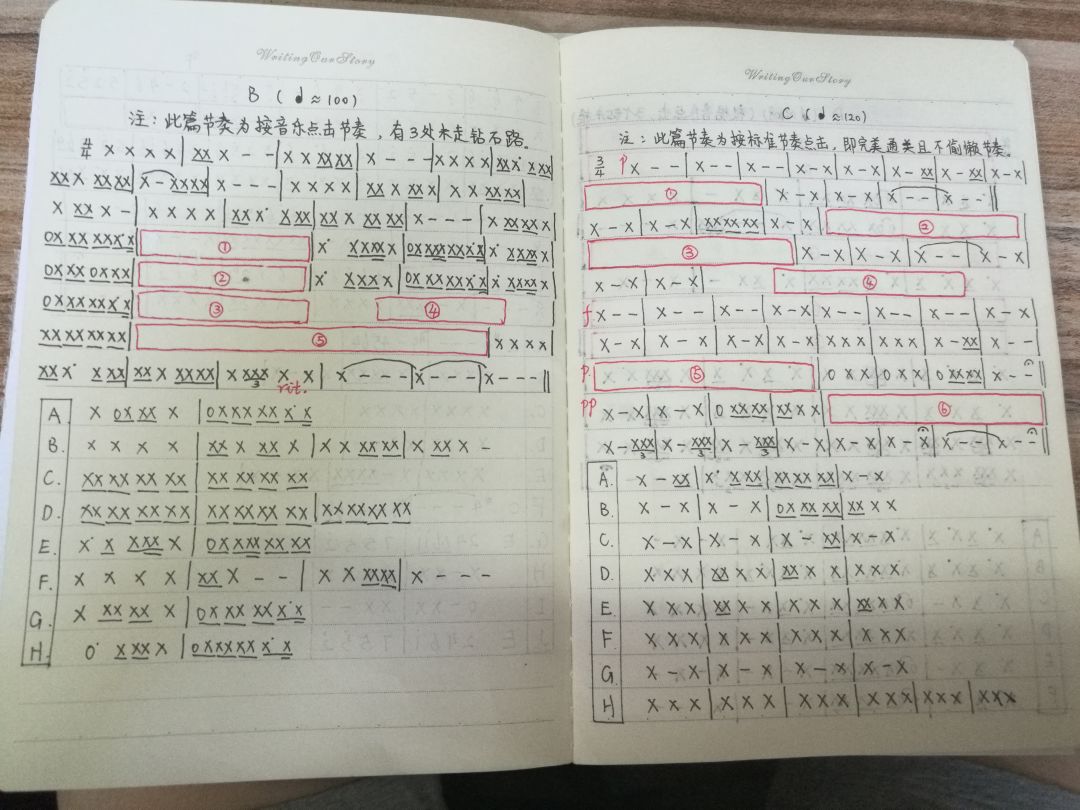 WritingOurStory
B ( ♩ ≈ 100 )
注: 此篇节奏为按音乐点击节奏, 有3处未走钻石路.
4/4 X X X X | XX X - - | X X XX XX | X - - - | XXXX X X | XX X XX
XX X XX XX | X - XX XX | X - - - | X X X X | XX X XX X | X X XX XX |
X XX X - | X X X X | XX X· X XX | XX X XX XX | X - - - | X XX XX X |
0X XX XX X·X | ① | X· XXX X | 0X XXX XX X·X | X· XXX X |
0X XX 0X XX | ② | X· XXX X | 0X XXX XX X·X | X· XXX X |
0X XX XX X·X | ③ ④ |
XX XX XX XX | ⑤ | X X X X |
XX X· X XX | XX X XX XX | X XXX X X | X - - - | X - - - | X - - - ||
3
rit.
A. X 0X XX X | 0X XX XX X·X
B. X X X X | XX X XX X | X X XX XX | X XX X -
C. XX XX XX XX | XX XX XX XX
D. XX XX XX XX | XX XX XX XX | XX XX XX XX
E. X· X XXX X | 0X XXX XX XX
F. X X X X | XX X - - | X X XX XX | X - - -
G. X XX XX X | 0X XX XX X·X
H. 0· XXX X | 0X XX XX X·X
WritingOurStory
C ( ♩ ≈ 120 )
注: 此篇节奏为按标准节奏点击, 即完美通关且不偷懒节奏.
3/4 P X - - | X - - | X - X | X - X | X - X | X - XX | X - XX | X - X |
① | X - X | X - X | X - - | X - - ||
X - X | X - X | XX XX XX | X - X | ② |
③ | X - X | X - X | X - - | X - X |
X - X | X - X | ④ |
f X - - | X - - | X - X | X - - | X - - | X - - | X - X |
X - X | X - X | X X X | X X X | X X X | X - XX | X - X |
P ⑤ | 0 X X | 0 X X | 0 XX XX | X - - ||
PP X - X | X - X | 0 XX XX | XX X X | ⑥ |
X - XXX | X - XXX | X - XXX | X - X | X - X | X - X | X - - | X - - ||
3 3 3
A. X - XX | X· X XX | XX XX XX | X - X
B. X - X | X - X | 0X XX XX | XX X X
C. X - X | X - X | X - XX | X - X
D. X X X | XX X X | XX X X | X X X
E. X X X | XX X X | X X X | XX X X
F X X X | X X X | X X X | X X X
G. X - X | X - X | X - X | X - X
H X X X | X X X | X X X | X X X | X X X | X X X